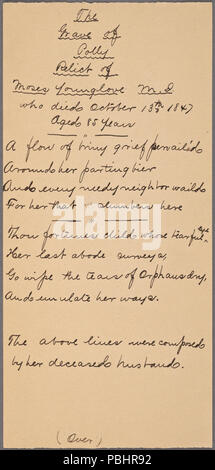 The
Grave of
Polly
Relict of
Moses Younglove M.D
who died October 13th 1847
Aged 85 years
A flow of briny grief pervailed
Around her parting bier
And every needy neighbor waild
For her that slumbers here
Thou fortunes child whose tearful eye
Her last abode surveys,
Go wipe the tears of Orphans dry,
And emulate her ways.
The above lines were composed
by her deceased husband.
(Over)
alamy
alamy stock photo
PBHR92
www.alamy.com